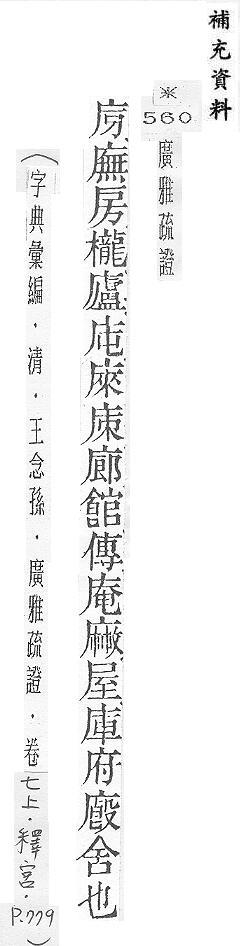 補充資料
※560廣雅疏證
庌廡房櫳廬庲廊館傳庵屋庫府廏舍也
(字典彙編．清．王念孫．廣雅疏證．卷七上．釋宮．P.779)